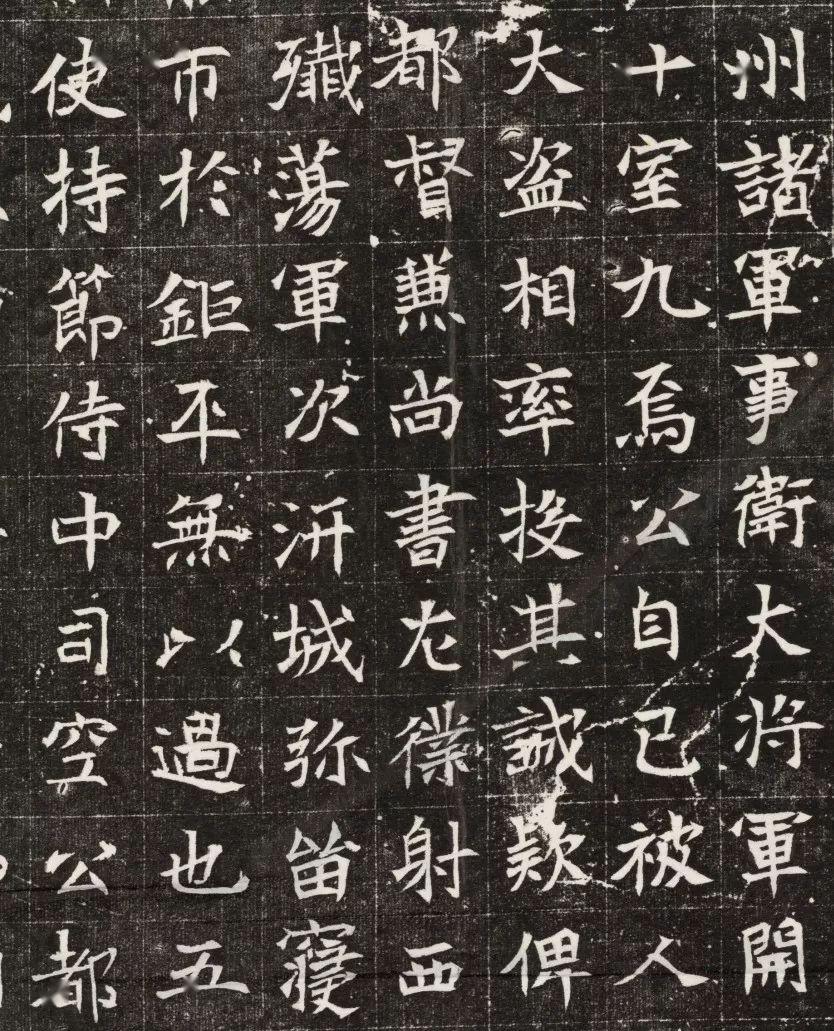 州諸軍事衛大将軍開
十室九焉公自己被人
大盗相率投其誠欵俾
都督蕪尚書尢僕射西
殲蕩軍次汧城弥畄寑
帀於鉅平無以過也五
使持節侍中司空公都